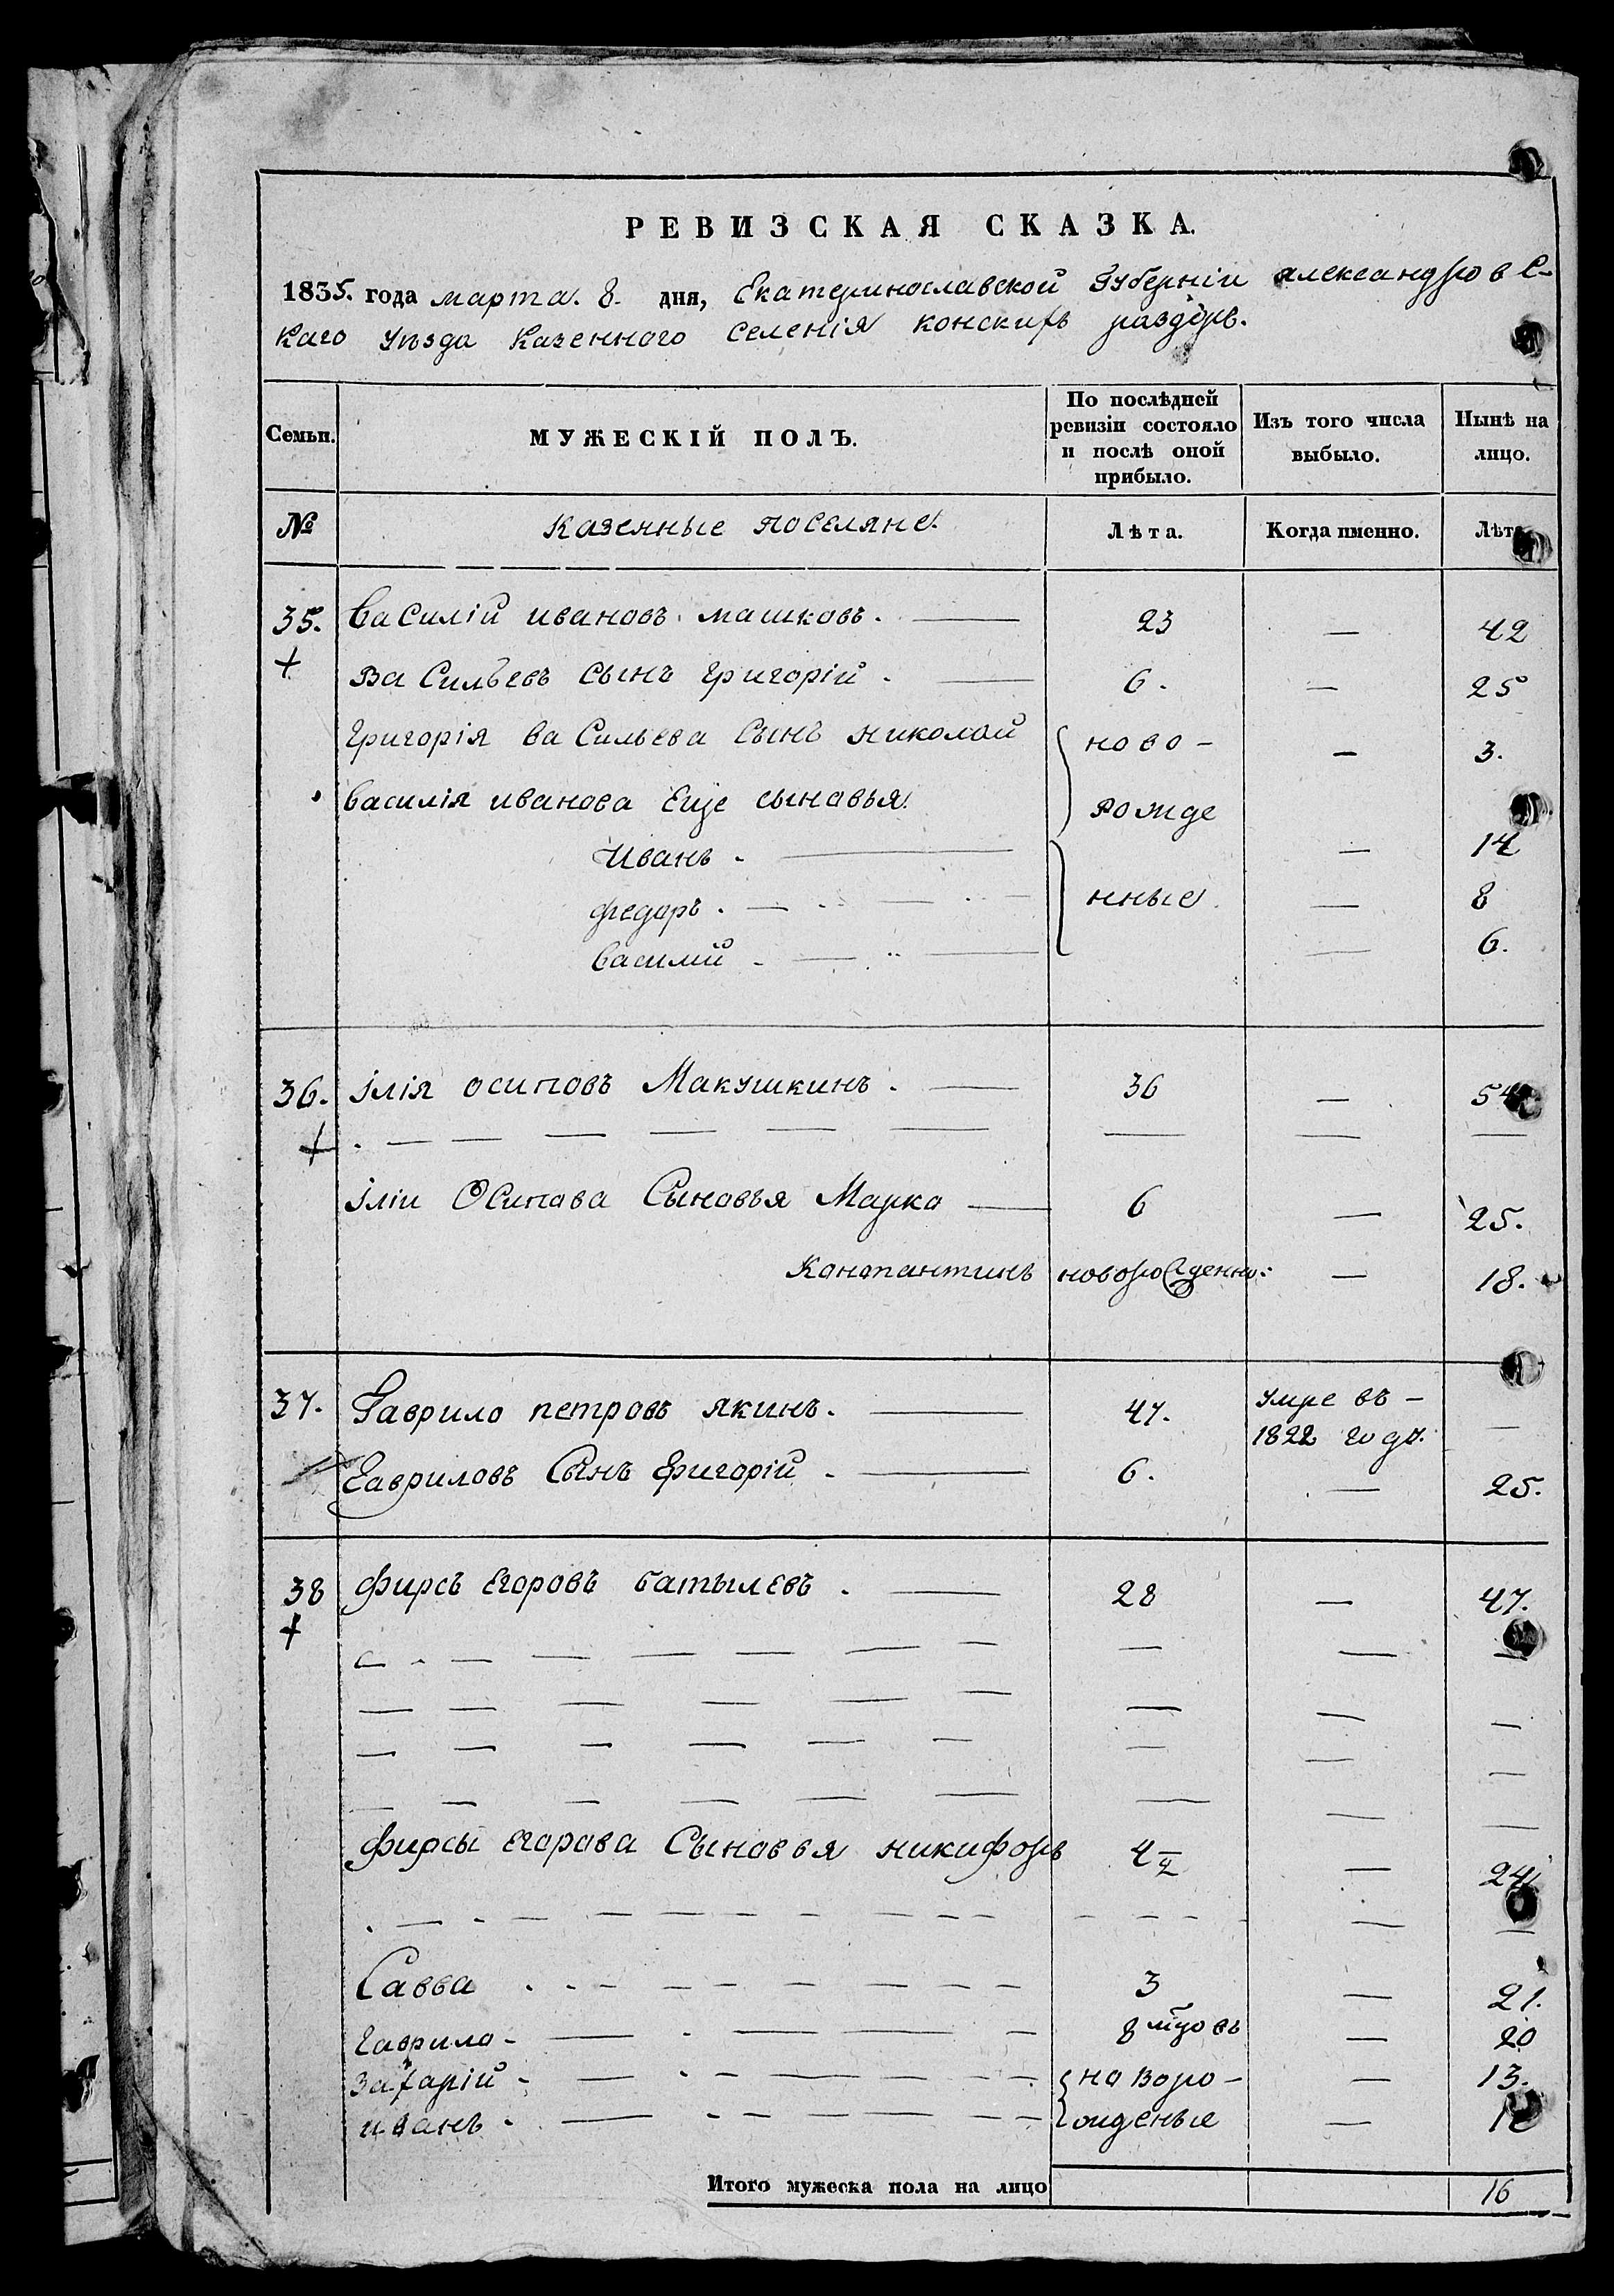 РЕВИЗСКАЯ СКАЗКА.
1835. года марта. 8. дня, Екатеринославской Губерніи александровс-
каго уѣзда казенного селенія конскихъ раздоръ.
Семьи. МУЖЕСКІЙ ПОЛЪ. По послѣдней ревизіи состояло и послѣ оной прибыло. Изъ того числа выбыло. Нынѣ на лицо.
№ казенные поселяне. Лѣта. Когда именно. Лѣта
35. Василій ивановъ машковъ. — 23 — 42
+ Васильевъ сынъ григорій. — 6. — 25
Григорія васильева сынъ николай ново- — 3.
василія иванова еще сыновья рожде
Иванъ. — — 14
федоръ. — нные — 8
василий — — 6.
36. ілія осиповъ Макушкинъ. — 36 — 54
+ . — — — — — — — — —
іліи Осипова Сыновья Марко — 6 — 25.
Констпантинъ новорожденно: — 18.
37. Гаврило петровъ якинъ. — 47. умре въ - —
1822 году.
Гавриловъ Сынъ григорій. — 6. — 25.
38 фирсъ егоровъ батылевъ. — 28 — 47.
+
фирсы егорова Сыновья никифоръ — 24
Савва — 3 — 21.
Гаврило — 8 мцовъ — 20
захарій — новоро- — 13.
иванъ. — жденые —
Итого мужеска пола на лицо 16